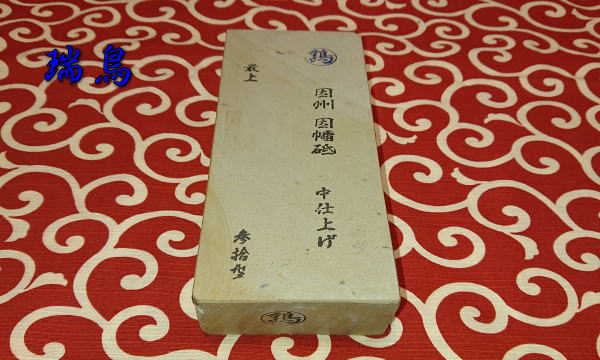 瑞鳥
最上
因州 因幡砥 中仕上げ
参拾型